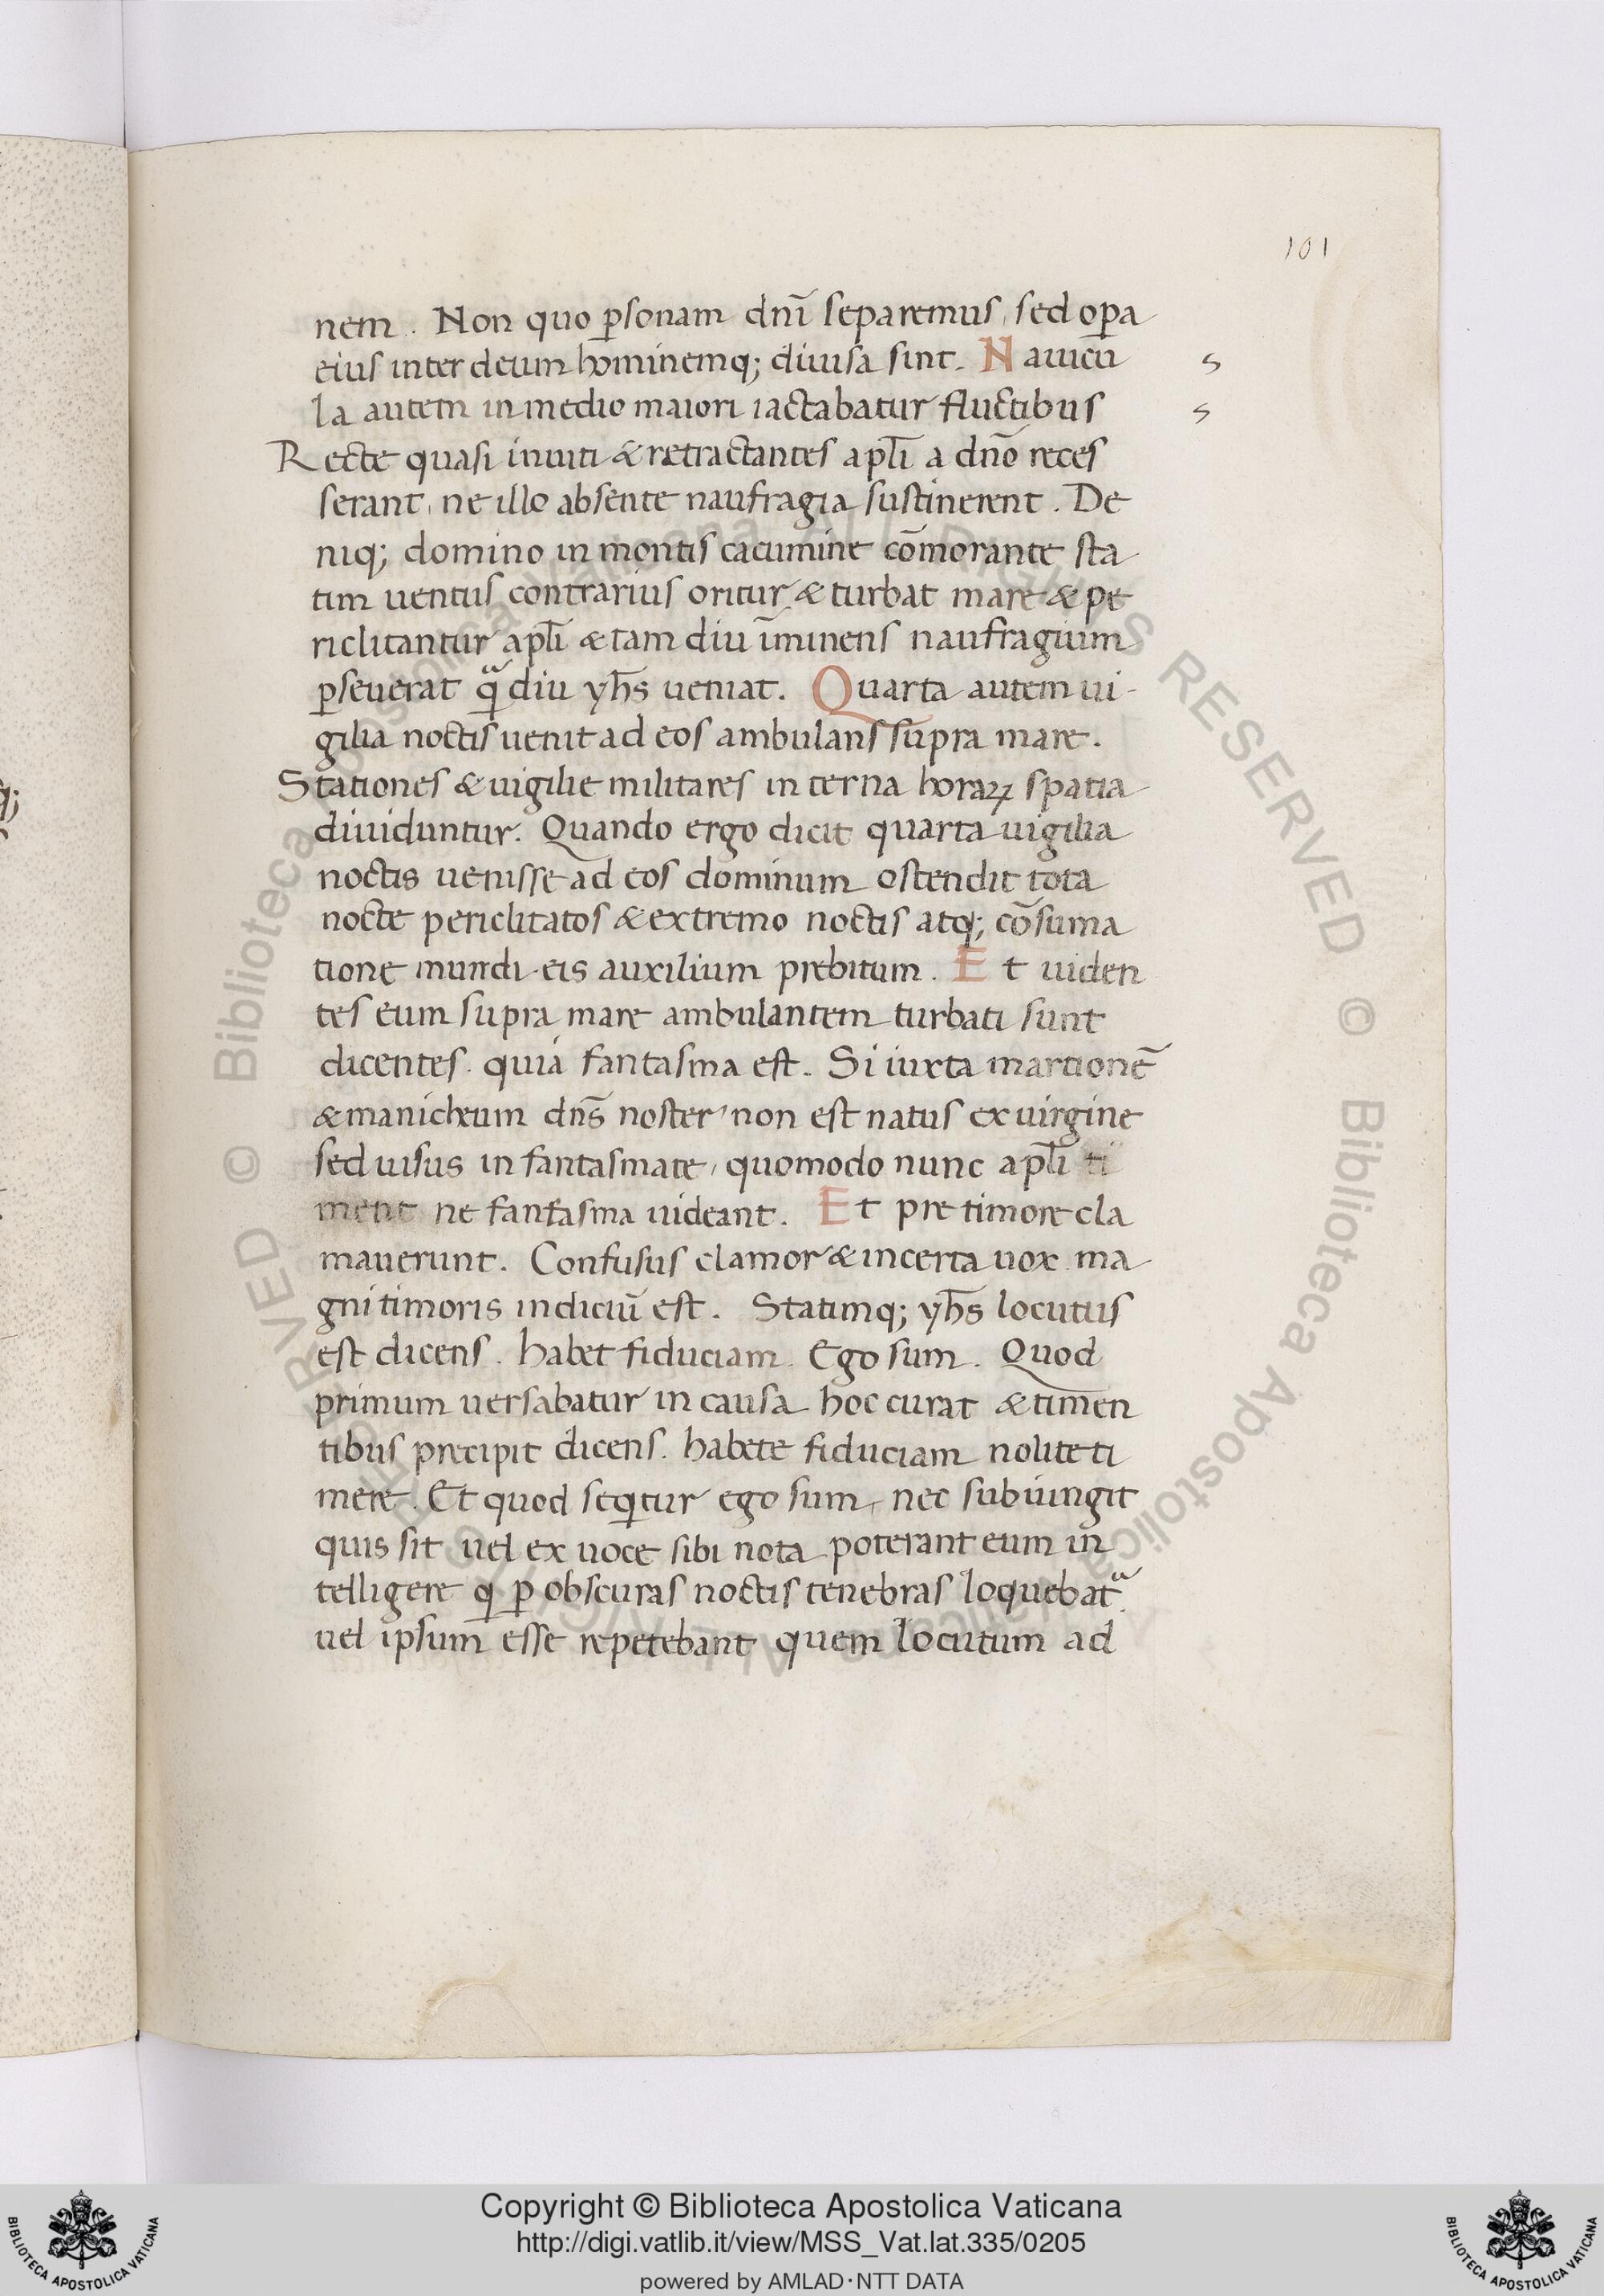 101
nem. Non quo ꝑsonam dnī separemus, sed oꝑa
eius inter deum hominemq; diuisa sint. Nauicu
s
la autem in medio maiori iactabatur fluctibus
s
Recte quasi inuiti & retractantes apli̅ a dnō reces
serant, ne illo absente naufragia sustinerent. De
niq; domino in montis cacumine cōmorante sta
tim uentus contrarius oritur & turbat mare & pe
riclitantur apli̅ & tam diu īminens naufragium
ꝑseuerat qͣ diu yh̅s ueniat. Quarta autem ui-
gilia noctis uenit ad eos ambulans supra mare.
Stationes & uigilie militares in terna horaꝝ spatia
diuiduntur. Quando ergo dicit quarta uigilia
noctis uenisse ad eos dominum ostendit tota
nocte periclitatos & extremo noctis atq; cōsuma
tione mundi eis auxilium prebitum. Et uiden
tes eum supra mare ambulantem turbati sunt
dicentes. quia fantasma est. Si iuxta martionē
& manicheum dn̅s noster non est natus ex uirgine
sed uisus in fantasmate, quomodo nunc apli̅ ti
ment ne fantasma uideant. Et pre timore cla
mauerunt. Confusus clamor & incerta uox ma
gni timoris indiciū est. Statimq; yh̅s locutus
est dicens. habet fiduciam. Ego sum. Quod
primum uersabatur in causa hoc curat & timen
tibus precipit dicens. habete fiduciam nolite ti
mere. Et quod seqͥtur ego sum, nec subiungit
quis sit uel ex uoce sibi nota poterant eum in
telligere qͥ ꝑ obscuras noctis tenebras loquebatͣ.
uel ipsum esse repetebant quem locutum ad
Copyright © Biblioteca Apostolica Vaticana
http://digi.vatlib.it/view/MSS_Vat.lat.335/0205
powered by AMLAD·NTT DATA